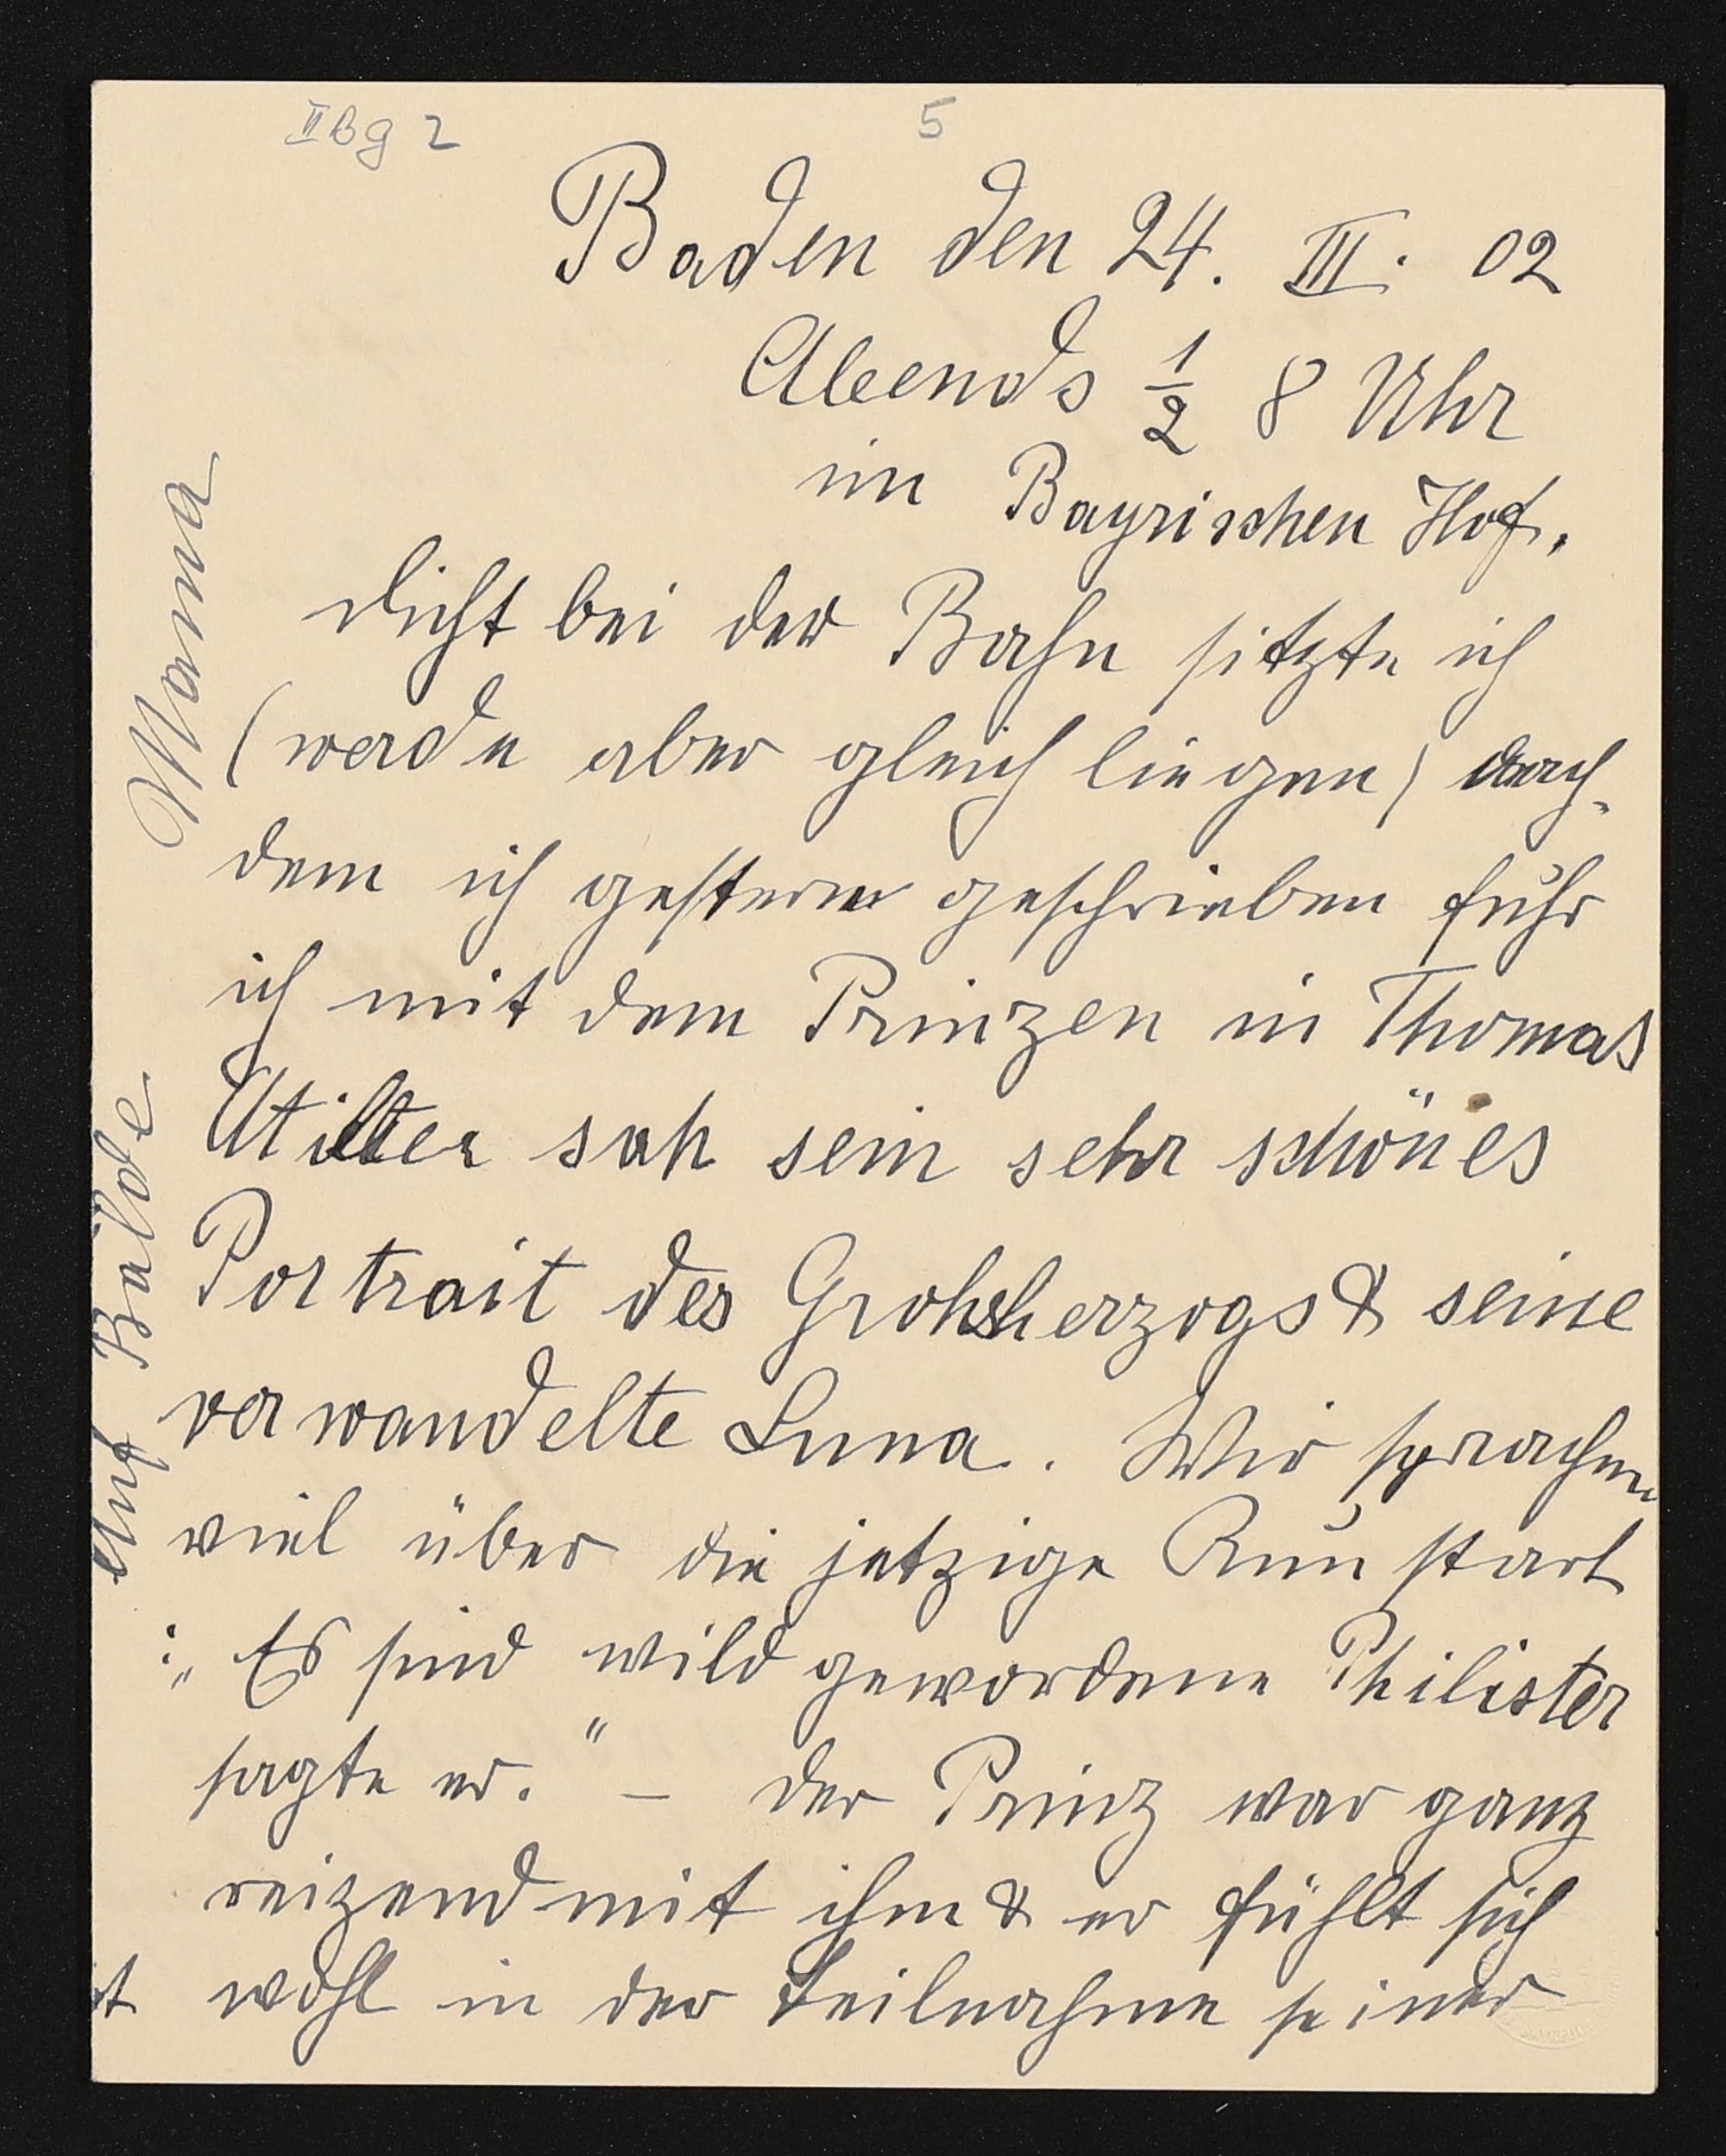 IIbg 2
5
Baden den 24. III. 02
Abends ½ 8 Uhr
im Bayrischen Hof.
dicht bei der Bahn sitzte ich
(werde aber gleich liegen) nach-
dem ich gestern geschrieben fuhr
ich mit dem Prinzen in Thomas
Attilier sah sein sehr schönes
Portrait des Grohsherzogs & seine
verwandelte Luna. Wir sprachen
viel über die jetzige Kunstart
: „Es sind wild gewordene Philister
sagte er." – der Prinz war ganz
reizend mit ihm & er fühlt sich
wohl in der Teilnahme seiner
Auf Bälde
Mama